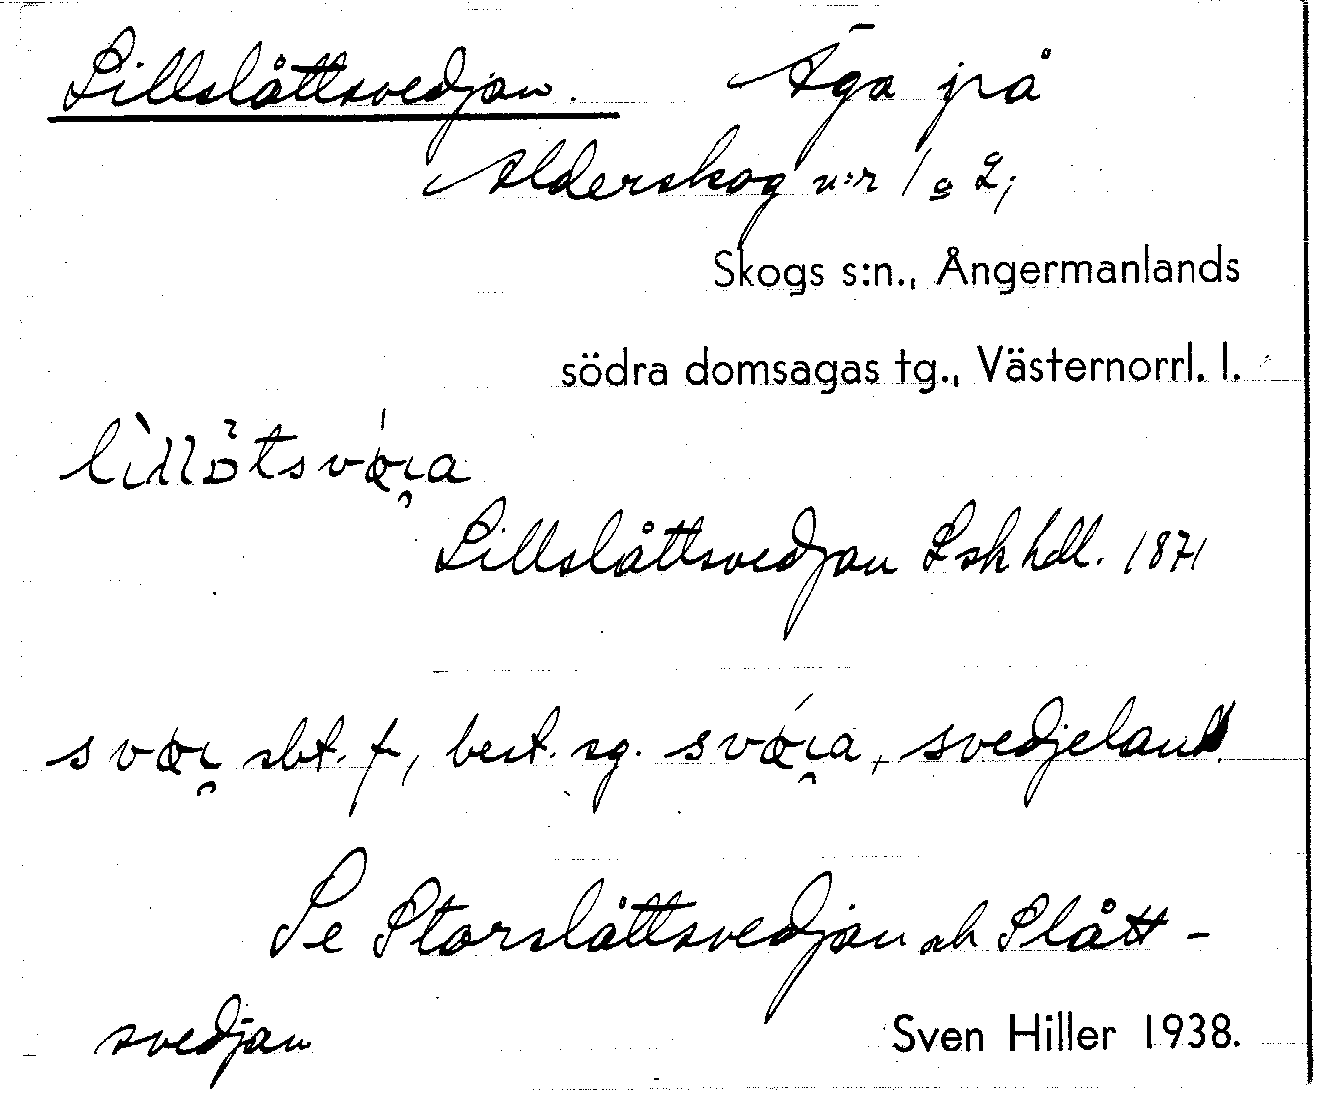 Lillslåttsvedjan. Äga på
Alderskog n:r 1 o 2;
Skogs s:n., Ångermanlands
södra domsagas tg., Västernorrl. l.
Lillslåttsvedjan Lsk hdl. 1871
sbt. f, best. sg. svedjeland.
Se Storslåttsvedjan och Slått-
svedjan Sven Hiller 1938.